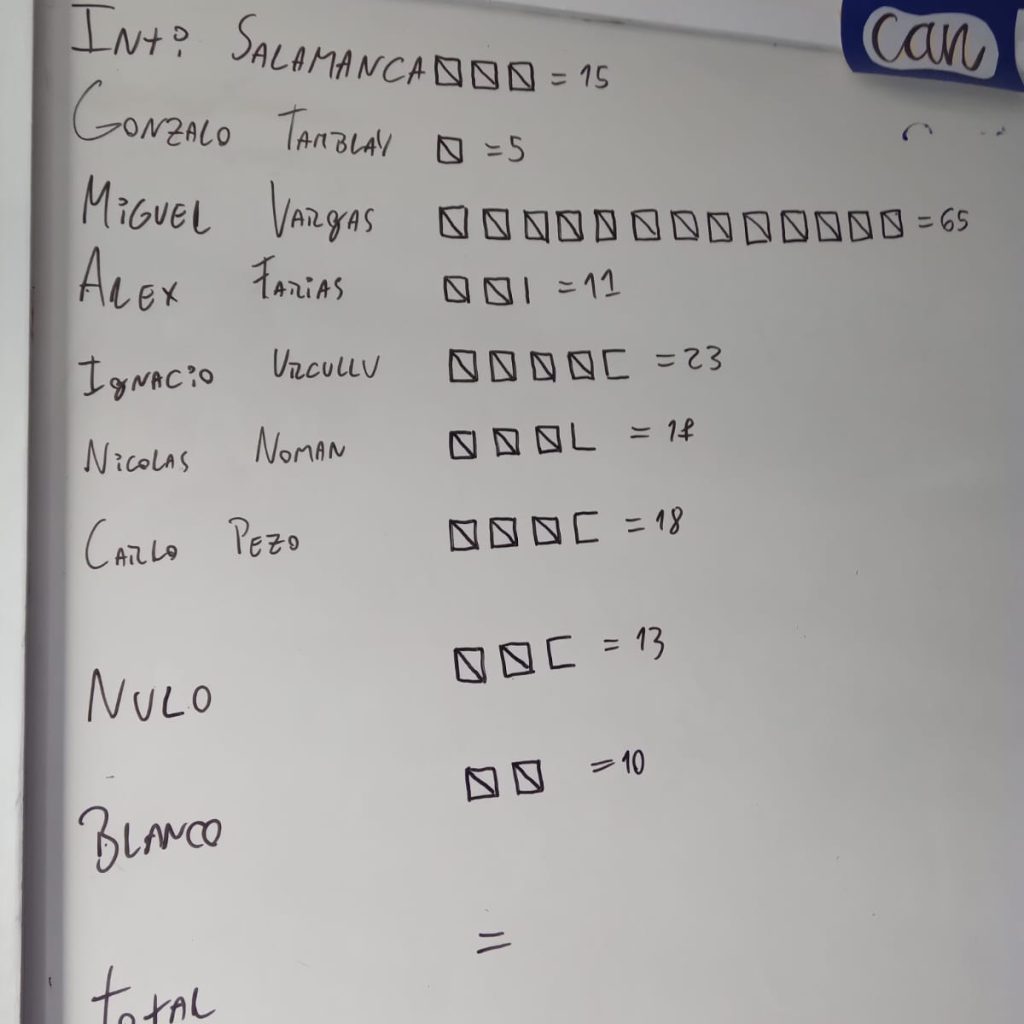 can
Int: SALAMANCA = 15
GONZALO TAMBLAY = 5
MIGUEL VARGAS = 65
ALEX FARIAS = 11
IGNACIO URCULLU = 23
NICOLAS NOMAN = 17
CARLO PEZO = 18
NULO = 13
BLANCO = 10
=
TOTAL